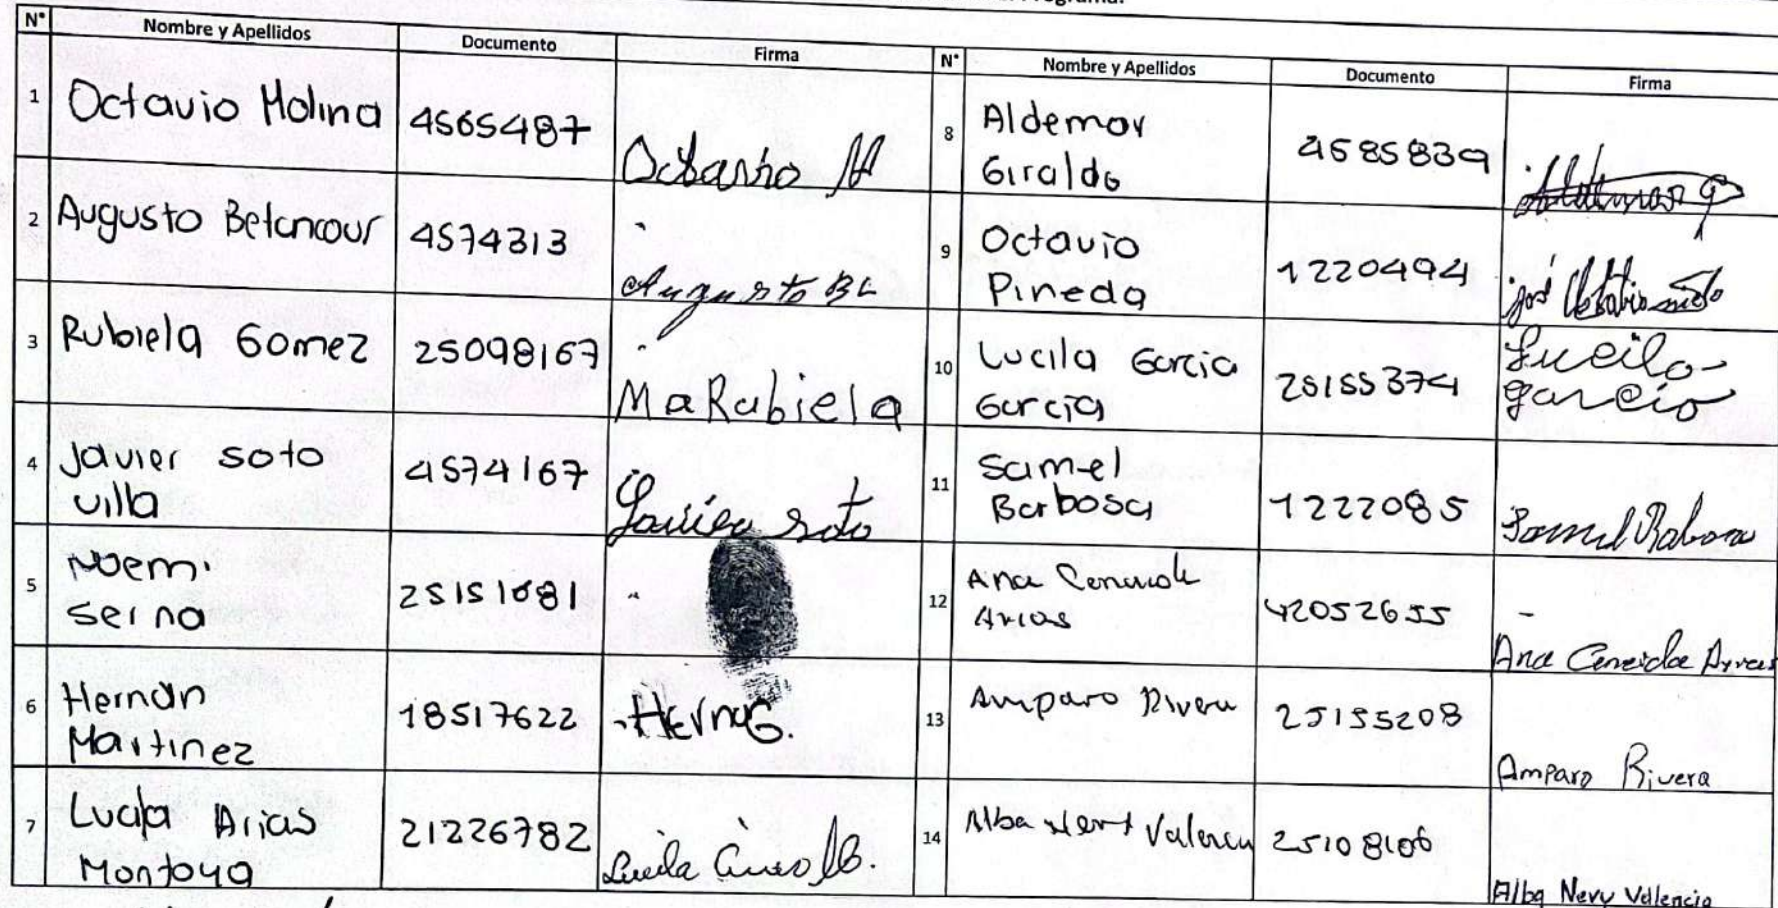 Programa.
N° Nombre y Apellidos Documento Firma N° Nombre y Apellidos Documento Firma
1 Octavio Molina 4565487 Octavio M 8 Aldemar Giraldo 4585839 Aldemar g
2 Augusto Betancour 4574313 Augusto Be 9 Octavio Pineda 1220494 josé
3 Rubiela Gomez 25098167 Ma Rubiela 10 Lucila Garcia Garcia 25155374 Lucila Garcia
4 Javier Soto Villa 4574167 Javier Soto 11 Samel Barbosa 1222085
5 Noemi Serna 25151081 12 Ana Arias 42052655 Ana Ceneida Arias
6 Hernan Martinez 18517622 13 Amparo Rivera 25155208 Amparo Rivera
7 Lucila Arias Montoya 21226782 Lucila 14 Alba Nery Valencia 25108106 Alba Nery Valencia